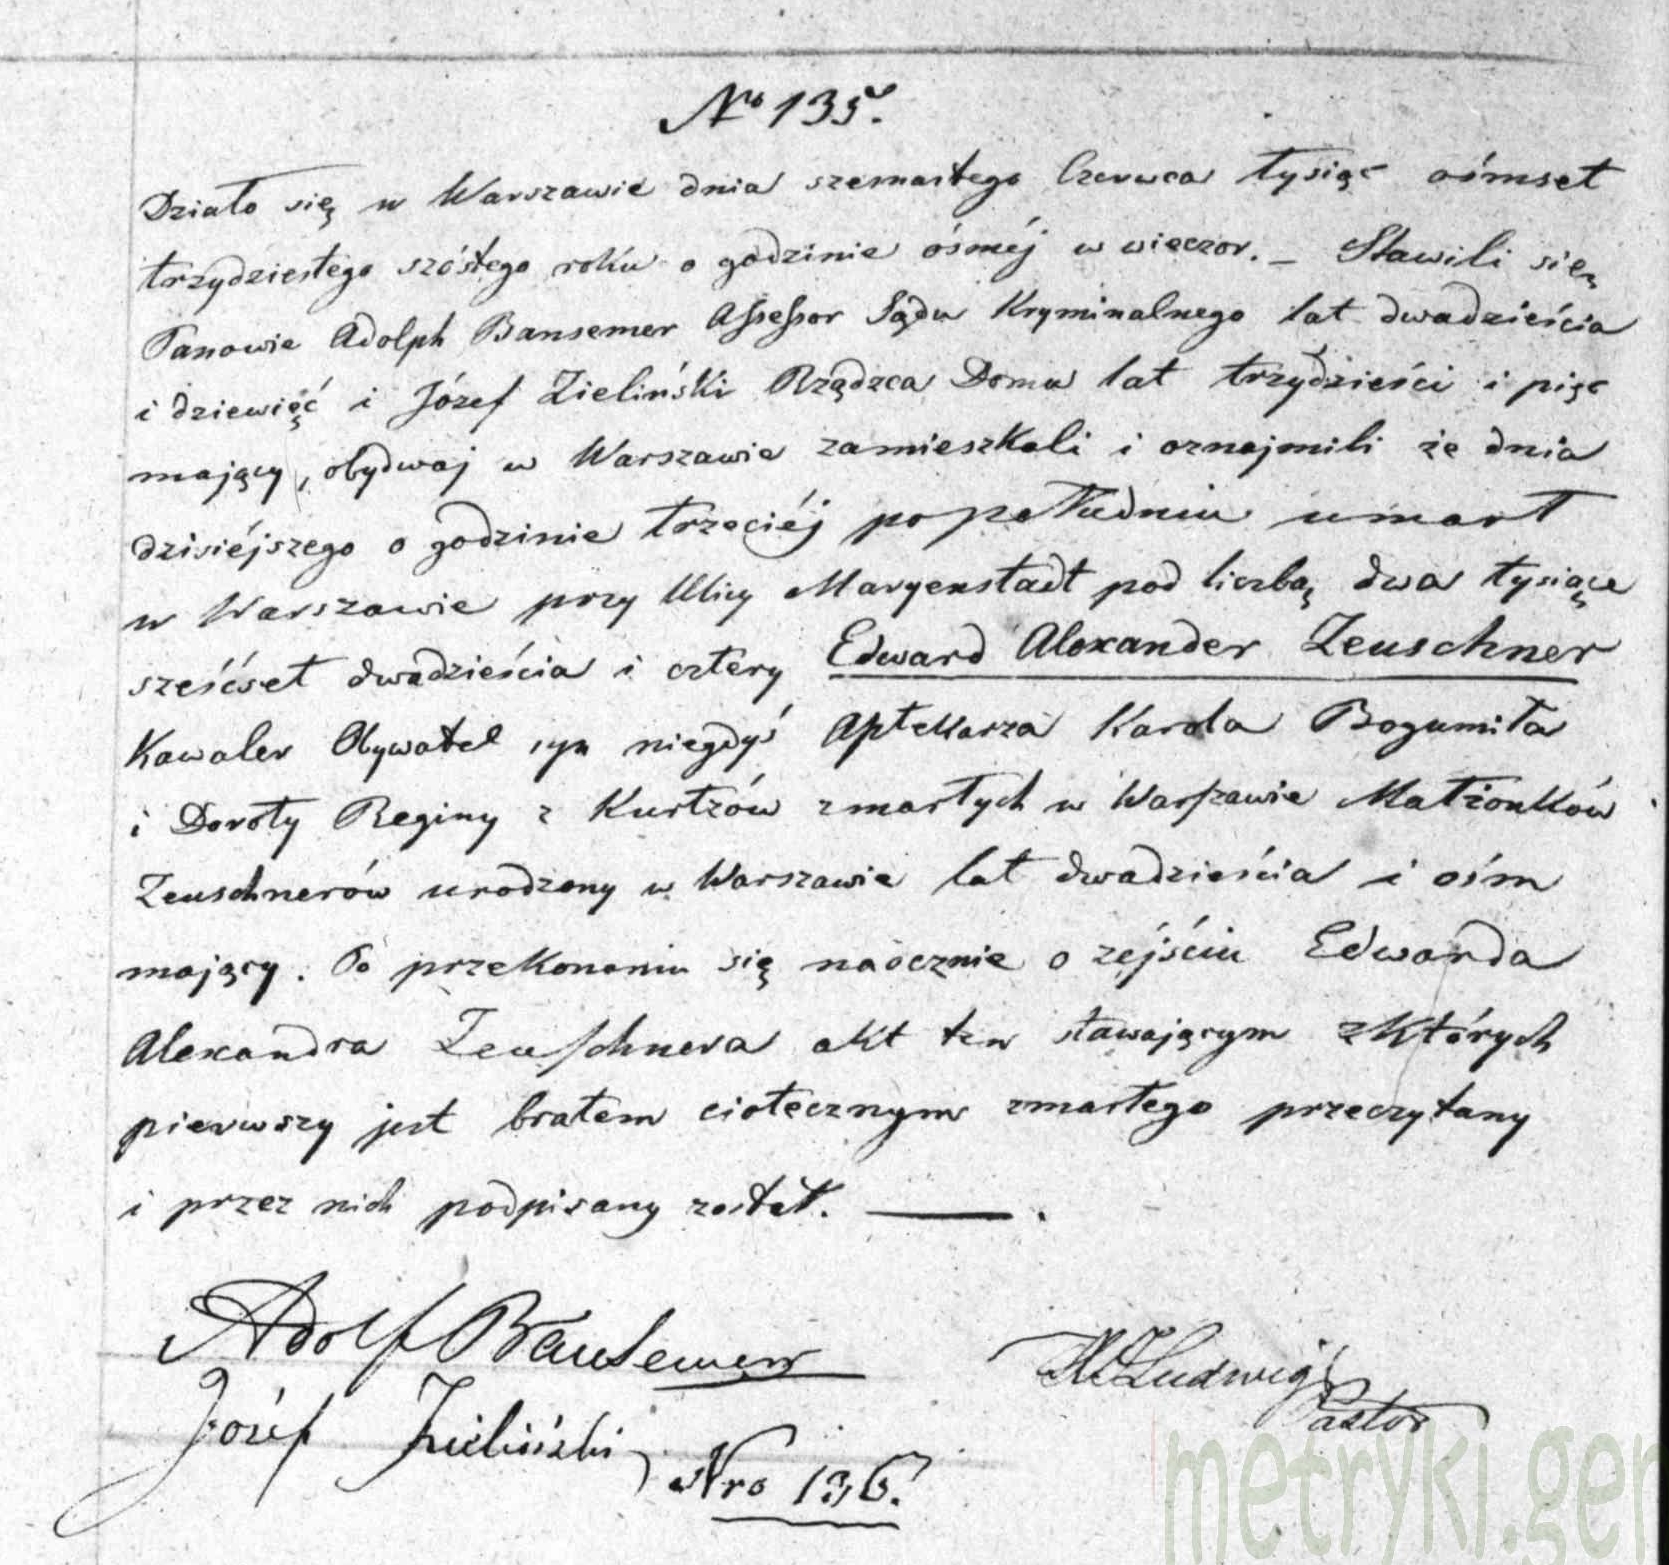 No 135.
Działo się w Warszawie dnia szesnastego Czerwca tysiąc ośmset
trzydziestego szóstego roku o godzinie ósméj w wieczor. – Stawili się
Panowie Adolph Bansemer Assessor Sądu Kryminalnego lat dwadzieścia
i dziewięć i Józef Zieliński Rządzca Domu lat trzydzieści i pięć
mający, obydwaj w Warszawie zamieszkali i oznajmili że dnia
dzisiéjszego o godzinie trzeciéj popołudniu umarł
w Warszawie przy Ulicy Maryenstadt pod liczbą dwa tysiące
sześćset dwadzieścia i cztery Edward Alexander Zeuschner
Kawaler Obywatel syn niegdyś Aptekarza Karola Bogumiła
i Doroty Reginy z Kurtzów zmarłych w Warszawie Małżonków
Zeuschnerów urodzony w Warszawie lat dwadzieścia i ośm
mający. Po przekonaniu się naocznie o zejściu Edwarda
Alexandra Zeuschnera akt ten stawającym z których
pierwszy jest bratem ciotecznym zmarłego przeczytany
i przez nich podpisany został. —.
Adolf Bansemer
Józef Zieliński
Ludwig
Pastor
Nro 136.
metryki.gen